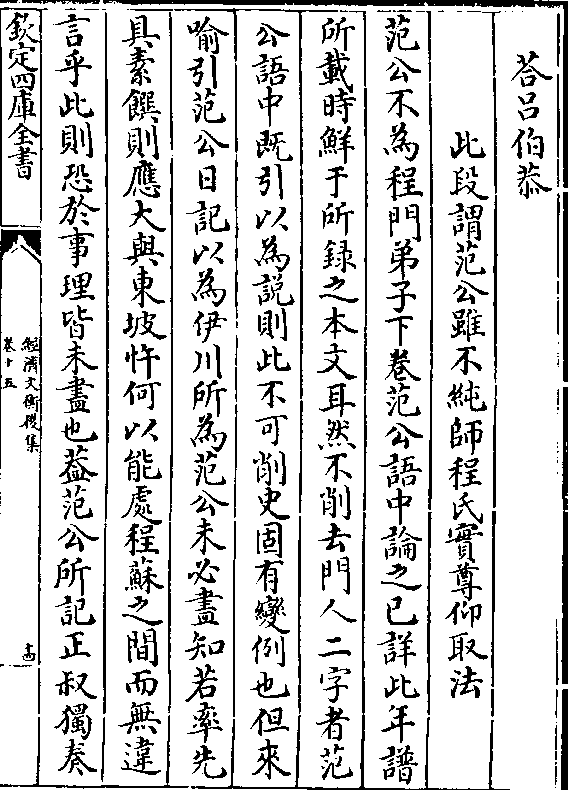 荅吕伯恭
此段謂范公雖不純師程氏實尊仰取法
范公不為程門弟子下卷范公語中論之已詳此年譜
所載時鮮于所録之本文耳然不削去門人二字者范
公語中既引以為説則此不可削史固有變例也但來
喻引范公日記以為伊川所為范公未必盡知若率先
具素饌則應大與東坡忤何以能處程蘇之間而無違
言乎此則恐於事理皆未盡也葢范公所記正叔獨奏
欽定四庫全書
經濟文衡後集
卷十五